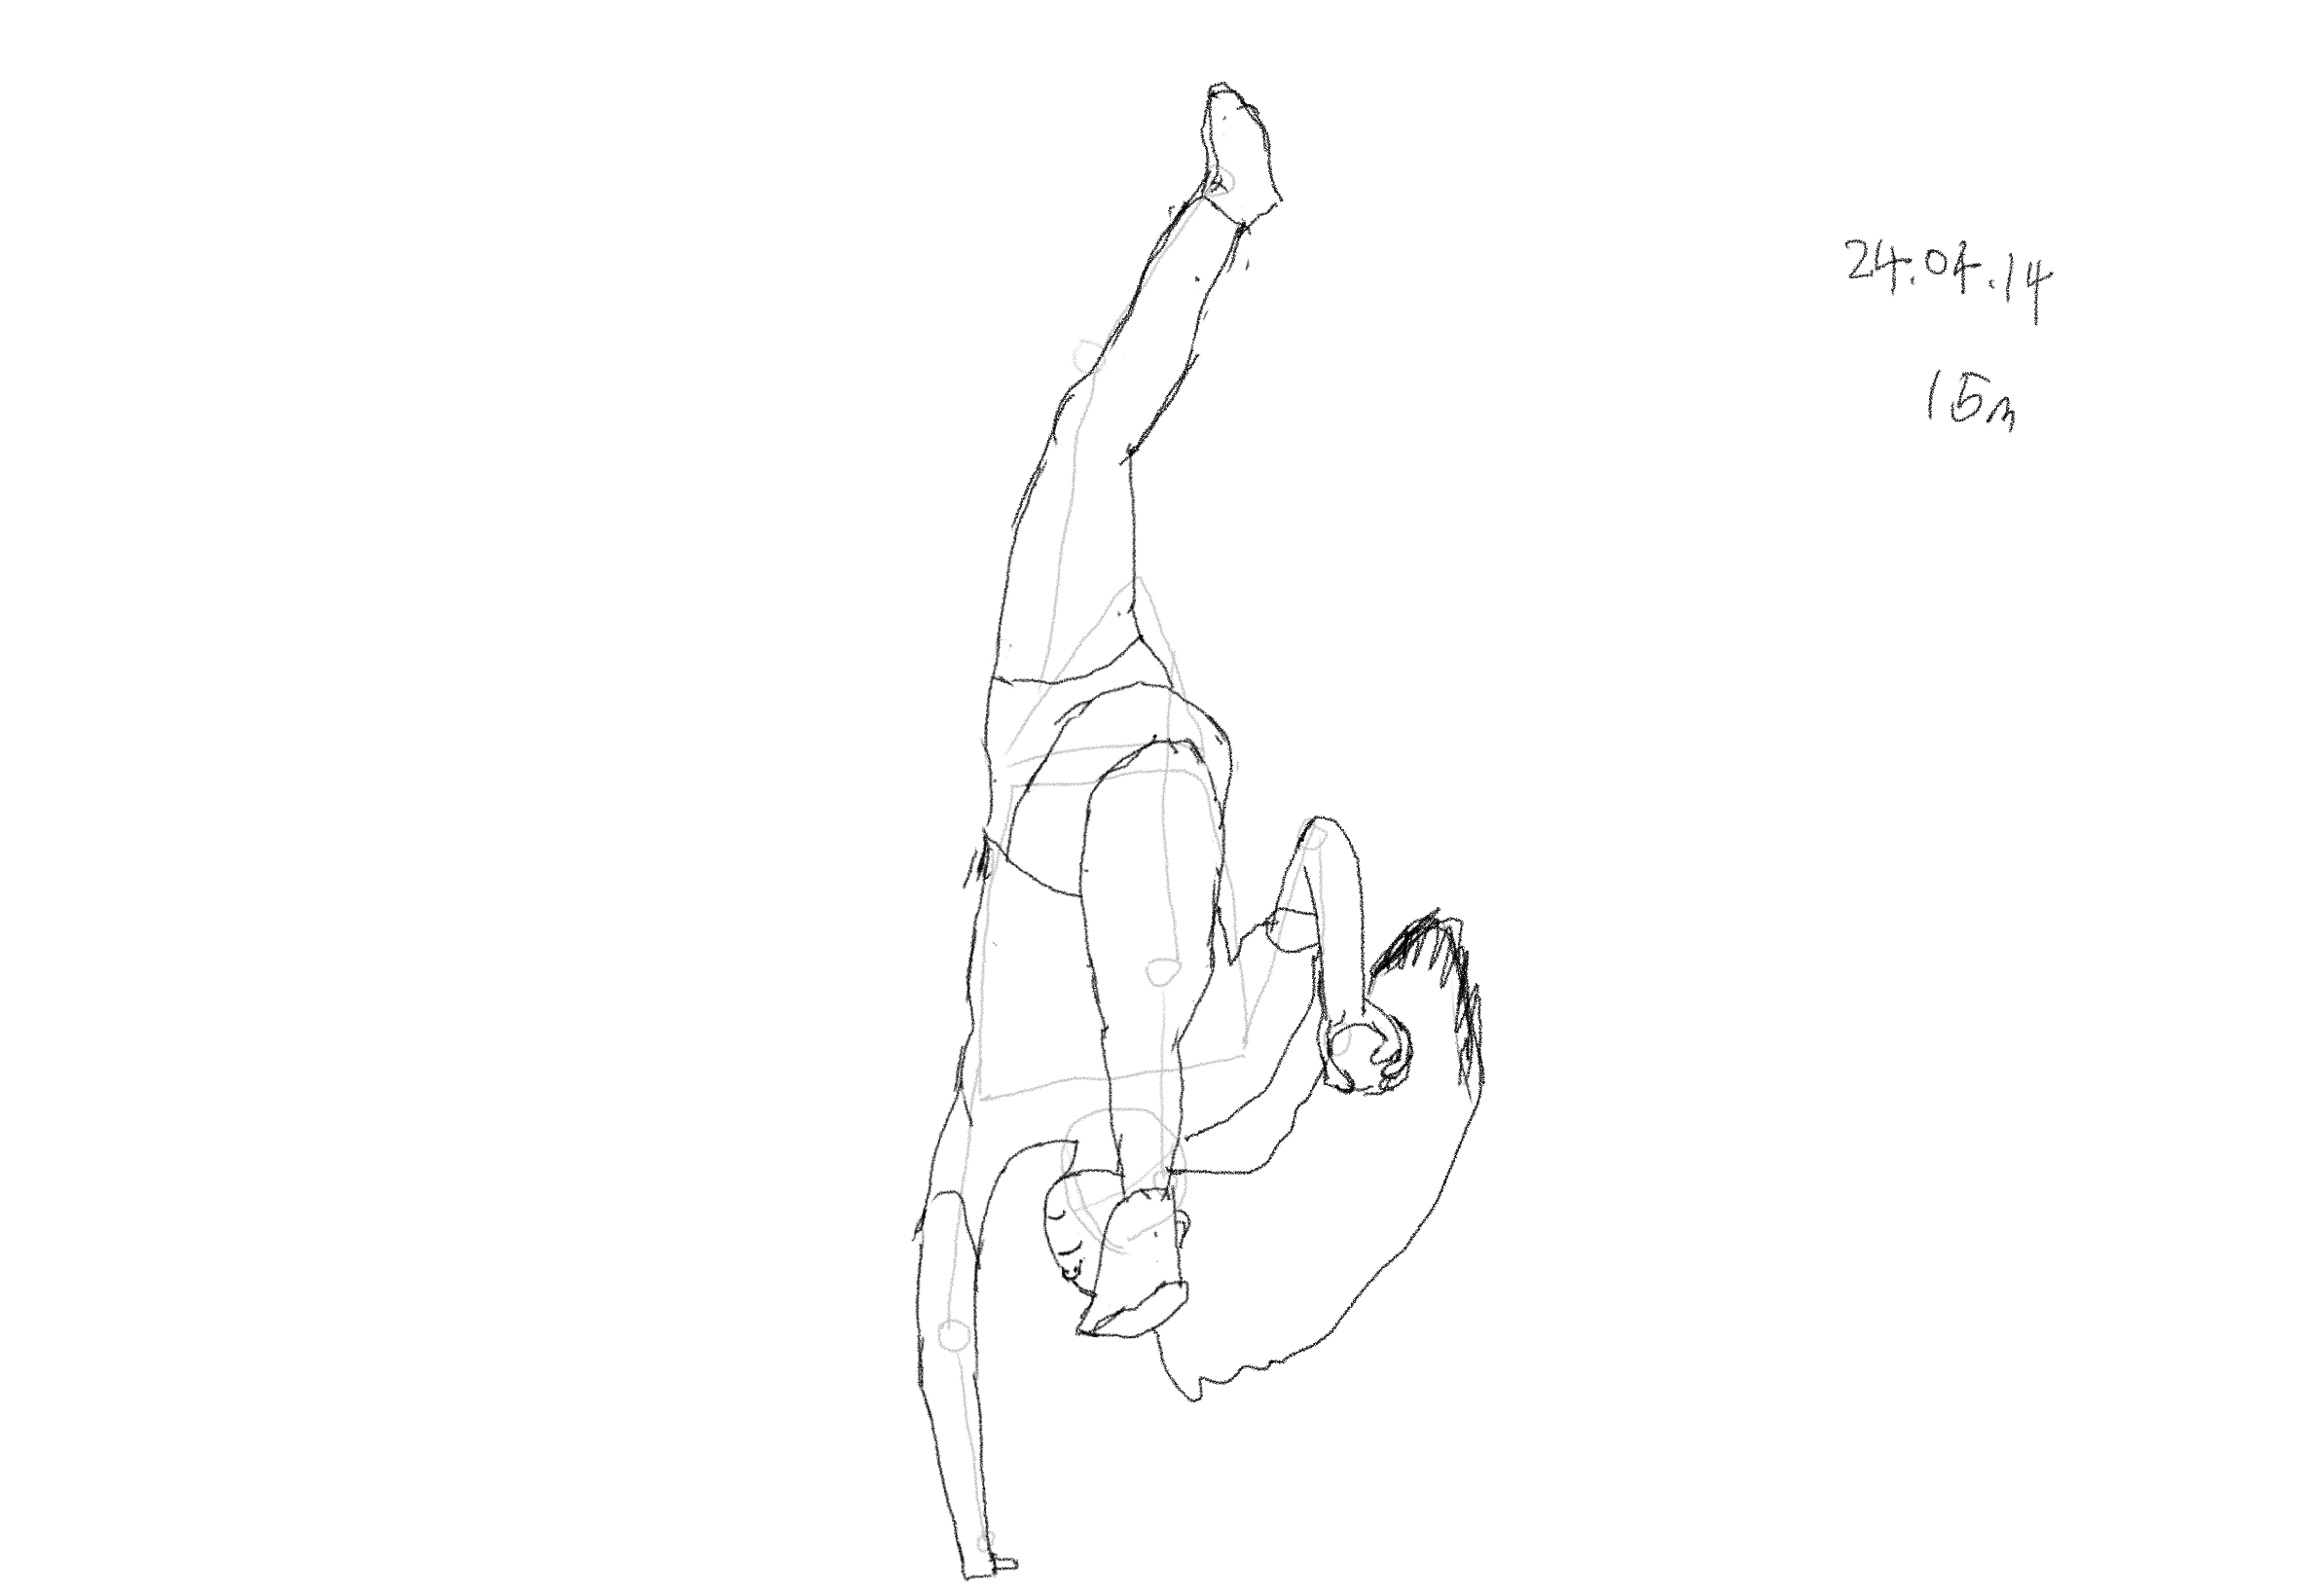 24.04.14
15m